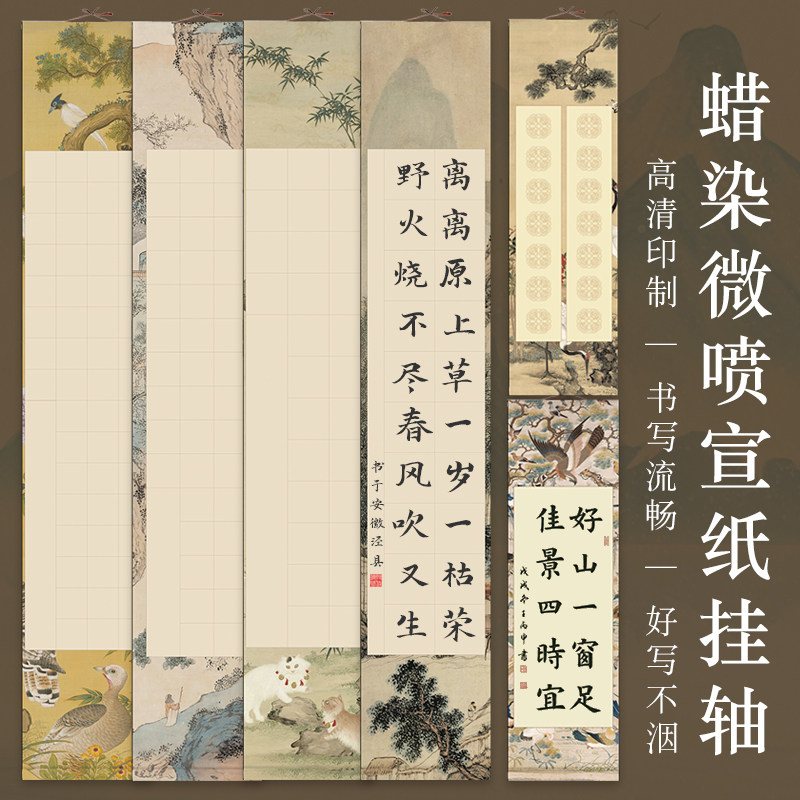 蜡染微喷宣纸挂轴
高清印制 — 书写流畅 — 好写不洇
离离原上草一岁一枯荣
野火烧不尽春风吹又生
书于安徽泾县
好山一窗足
佳景四時宜
戊戌冬王丙申書